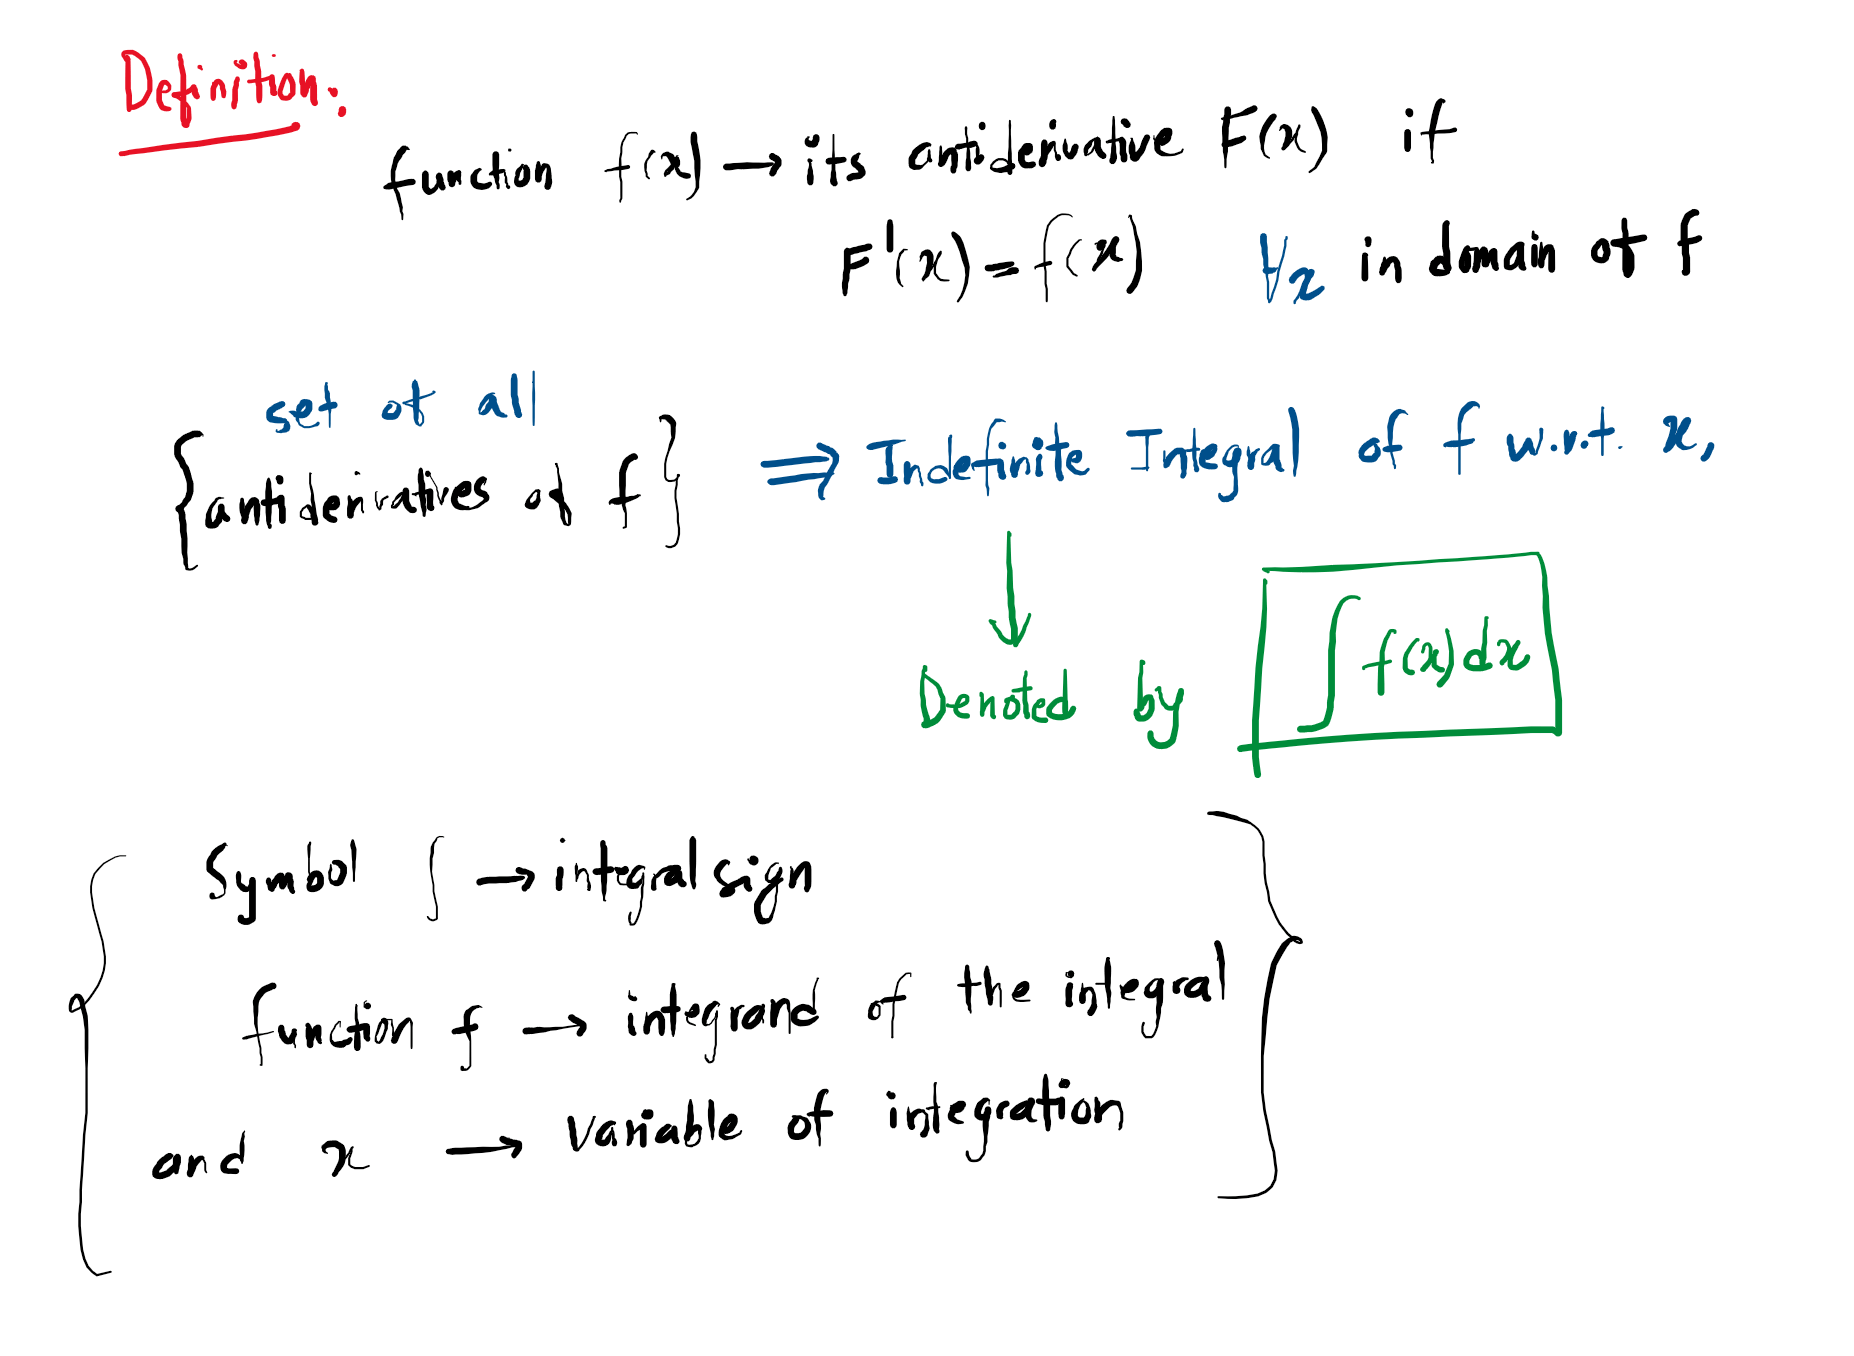 Definition:
function f(x) → its antiderivative F(x) if
F'(x) = f(x) ∀x in domain of f
{ set of all antiderivatives of f } ⇒ Indefinite Integral of f w.r.t. x,
↓
Denoted by ∫ f(x) dx
Symbol ∫ → integral sign
function f → integrand of the integral
and x → variable of integration